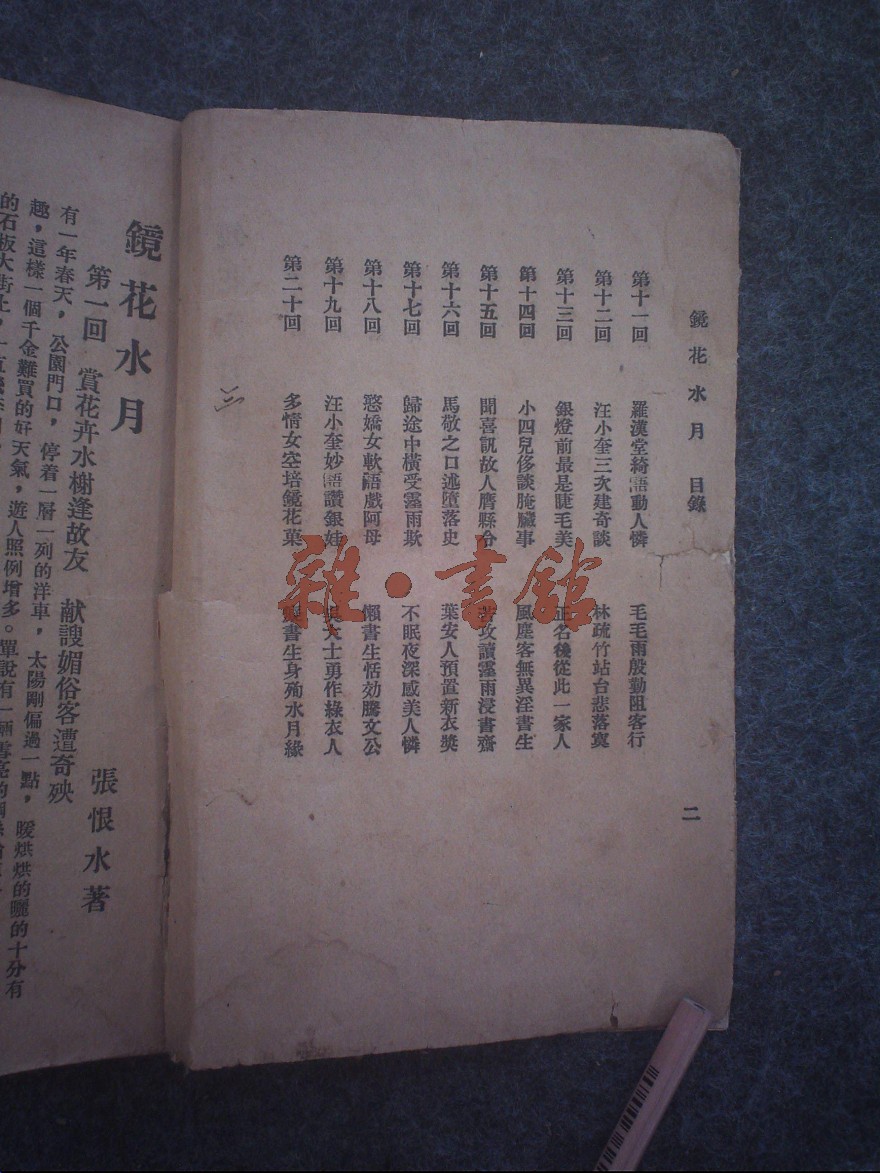 鏡花水月 目錄
第十一回 羅漢堂綺語動人憐 毛毛雨殷勤阻客行
第十二回 汪小奎三次建奇談 林疏竹站台悲落寞
第十三回 銀燈前最是睫毛美 正名後從此一家人
第十四回 小四兒侈談腌臢事 風塵客無異淫書生
第十五回 聞喜訊故人膺縣令 苦攻讀靈雨浸書齋
第十六回 馬敬之口述墮落史 葉安人預置新衣獎
第十七回 歸途中橫受靈雨欺 不眠夜深感美人憐
第十八回 憨嬌女軟語戲阿母 懶書生恬効騰文公
第十九回 汪小奎妙語讚銀娃 大士勇作綠衣人
第二十回 多情女空培鏡花菓 書生身殉水月緣
二
雜·書館
鏡花水月
張恨水著
第一回 賞花卉水榭逢故友 献諛媚俗客遭奇殃
有一年春天，公園門口，停着一層一列的洋車，太陽剛偏過一點，暖烘烘的曬的十分有
趣，這樣一個千金難買的好天氣，遊人照例增多。單說有一輛雪亮的
的石板大街上，一直